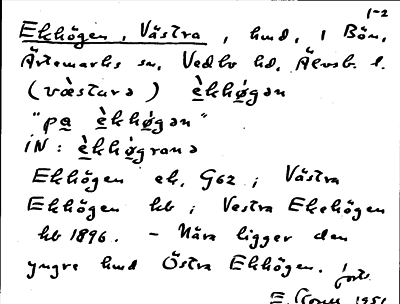 1-2
Ekhögen, Västra, hmd, i Bön,
Ärtemarks sn, Vedbo hd, Älvsb. l.
(væ̀stərə) è̱khø̱gən
"pa̱ è̱khø̱gən"
iN: è̱khø̱grənə
Ekhögen ek. G62; Västra
Ekhögen kb; Vestra Ekehögen
kb 1896. – Nära ligger den
yngre hmd Östra Ekhögen. forts.
E. 1951